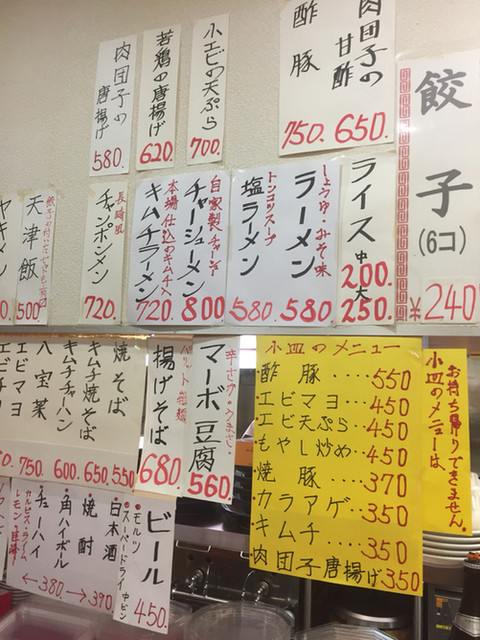 餃子
(6コ)
¥240
肉団子の
甘酢
650.
酢豚
750.
小エビの天ぷら
700.
若鶏の唐揚げ
620.
肉団子の
唐揚げ
580.
ライス 中 大
200.
250.
しょうゆ・みそ味
ラーメン
580.
トンコツスープ
塩ラーメン
580.
自家製チャーシュー
チャーシューメン
800
本場仕込のキムチ入
キムチラーメン
720.
長崎風
チャンポンメン
720.
天津飯
500
ヤキメシ
お持ち帰りできません。
小皿のメニューは
小皿のメニュー
・酢豚‥‥550
・エビマヨ‥450
・エビ天ぷら‥450
・もやし炒め‥450
・焼豚‥‥370
・カラアゲ‥‥350
・キムチ‥‥350
・肉団子唐揚げ350
辛さか・うまさ・
マーボ豆腐
560.
揚げそば
680.
焼そば
550
キムチ焼そば
650.
キムチチャーハン
600.
八宝菜
750.
エビマヨ
エビチリ
ビール
・モルツ
・スーパードライ 中ビン
450.
・白木酒
・焼酎
・角ハイボール
・チューハイ
←380→
→390